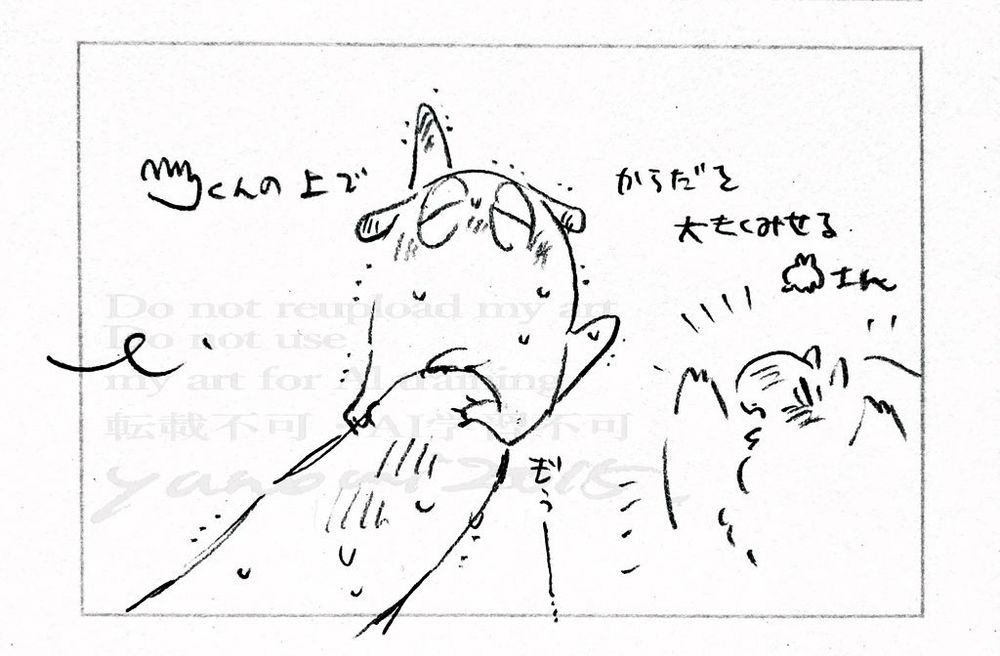 くんの上で
からだを
大きくみせる
さん
ぎゅ
Do not reupload my art
Do not use
my art for AI training
転載不可 AI学習不可